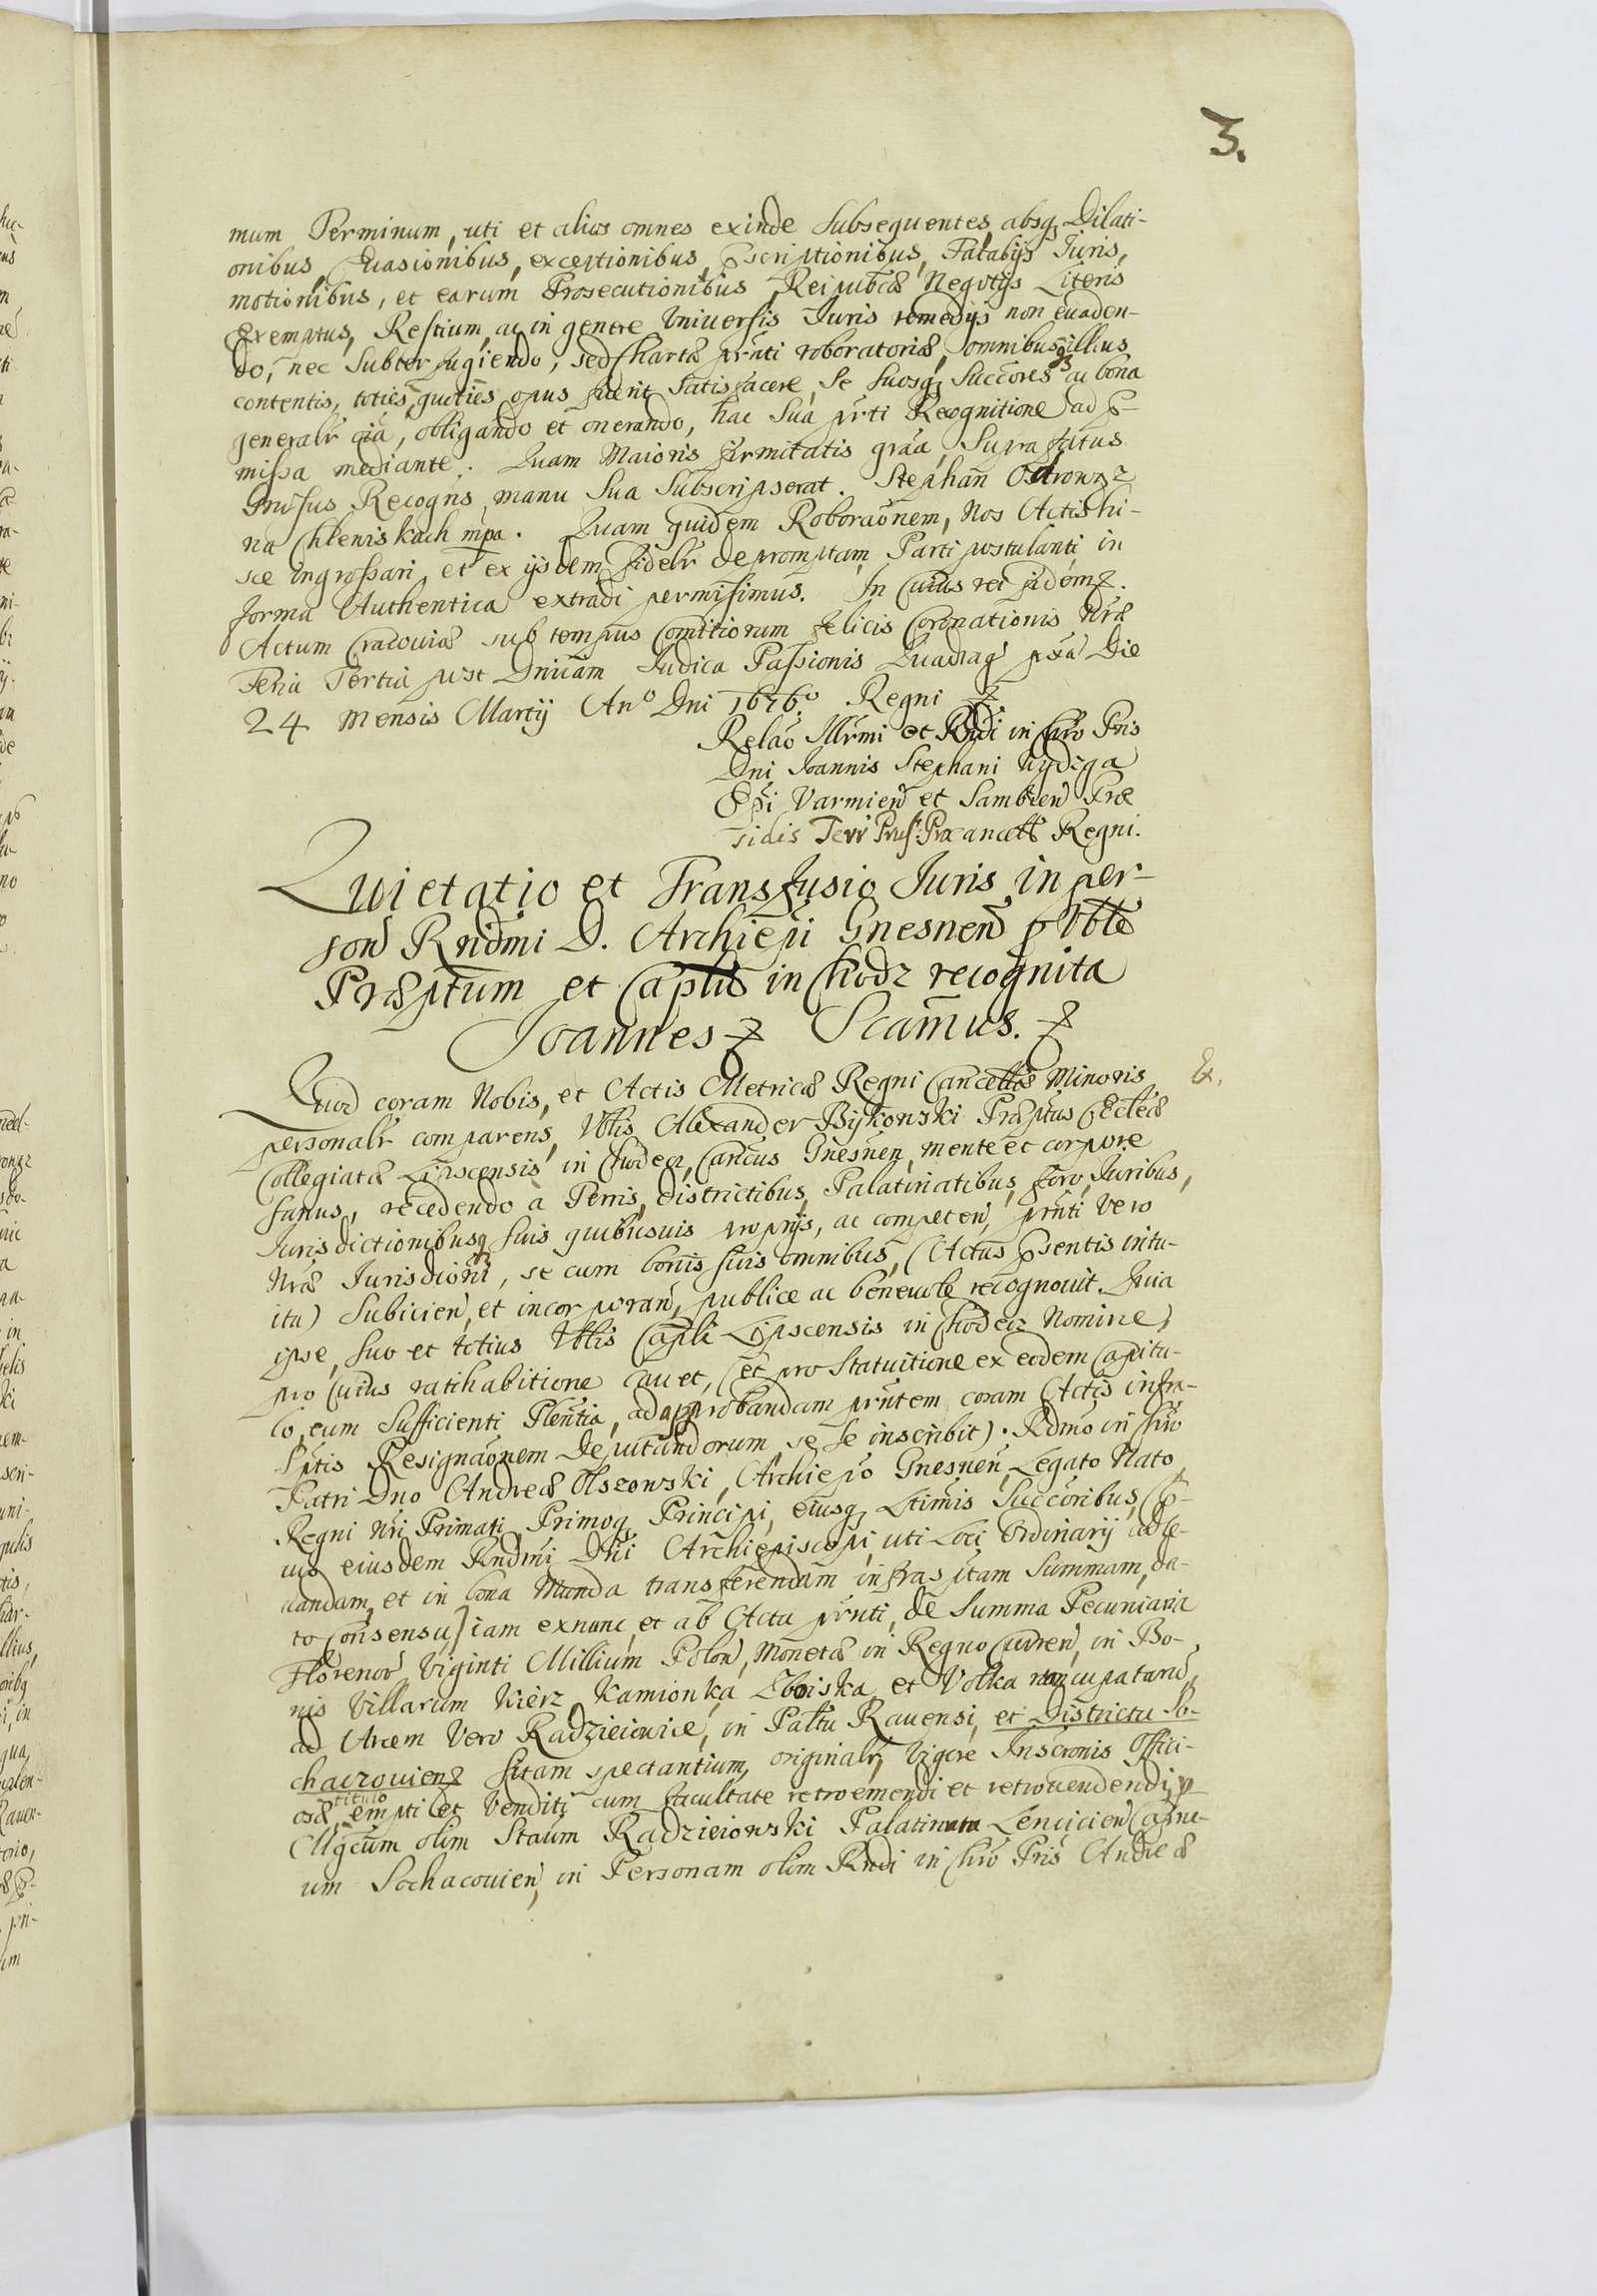 3.
mum Terminum, uti et alios omnes exinde Subsequentes, absq Dilati-
onibus, Euasionibus, exceptionibus, Pscriptionibus, Fatalijs Juris,
motionibus, et earum Prosecutionibus, Reipubcæ Negotijs Literis
Exemptus, Restium, ac in genere Vniuersis Juris remedijs non euaden-
do, nec Subterfugiendo, sed Chartæ prnti roboratoriæ, omnibusq illius
contentis, toties, quoties opus fuerit Satisfacere, Se Suosq Succores ac bona
generalr oia, obligando et onerando, hac Sua prnti Recognitione ad P-
missa mediante. Quam Maioris firmitatis graa, Supra fatus
Recogns manu Sua Subscripserat. Stephan
na Chleniskach mpa. Quam quidem Roboraonem, Nos Actis hi-
sce ingrossari, et ex ijsdem fidelr depromptam Parti postulanti in
forma Authentica extradi permisimus. In Cuius rei fidem &.
Actum Cracouiæ sub tempus Comitiorum felicis Coronationis Nræ
Feria Tertia post Dnicam Judica Passionis Quadrag pxa Die
24 mensis Martij Ano Dni 1676o Regni &
Relao Illrmi et Rndi in Chro Pris
Dni Joannis Stephani Wydzga
Epi Varmien et Sambien Præ
sidis Terr Prus: Procancell Regni.
Quietatio et Transfusio Juris in per-
son Rndmi D. Archiepi Gnesnen p Vble
Præptum et Caplæ in Chodz recognita
Joannes & Scamus. &
Quod coram Nobis, et Actis Metricæ Regni Cancellæ Minoris
&,
personalr comparens, Vblis Alexander Bykowski Præptus Ecleæ
Collegiatæ Lipscensis in Chodecz, Cancus Gnesnen, mente et corpore
sanus, recedendo à Terris, districtibus, Palatinatibus, foro, Juribus,
Jurisdictionibusq suis quibusuis proprijs, ac competen, prnti Vero
Nræ Jurisdioni, se cum bonis suis omnibus, (Actus Psentis intu-
itu) Subicien, et incorporan, publice ac beneuole recognouit. Quia
ipse, suo et totius Vblis Capli Lipscensis in Chodecz Nomine,
pro Cuius ratihabitione Cauet, (et pro Statuitione ex eodem Capitu-
lo, cum Sufficienti Plentia, ad approbandam prntem coram Actis infra-
Sptis Resignaonem Deputandorum se se inscribit). Rdmo in Chro
Patri Dno Andreæ Olszowski, Archiepo Gnesnen, Legato Nato,
Regni Nri Primati Primoq Principi, eiusq Ltimis Succoribus, (P-
uio eiusdem Rndmi Dni Archiepiscopi, uti Loci Ordinarij ad le-
uandam, et in bona Munda transferendam infrasptam Summam, da-
to Consensu) iam exnunc, et ab Actu prnti, de Summa Pecuniaria
Florenor Viginti Millium Polon, Monetæ in Regno Curren, in Bo-
nis Villarum Kierz, Kamionka Zboiska et Volka nuncupatarū,
ad Arcem Vero Radzieiowice, in Paltu Rauensi, et Districtu So-
chaczouien& sitam spectantium, originalr, Vigore Inscronis Offici-
osæ, titulo empti et Venditi cum facultate retroemendi et retrouendendi, p
Mgcum olim Staum Radzieiowski Palatinum Lencicien Capne-
um Sochacouien, in Personam olim Rndi in Chro Pris Andreæ